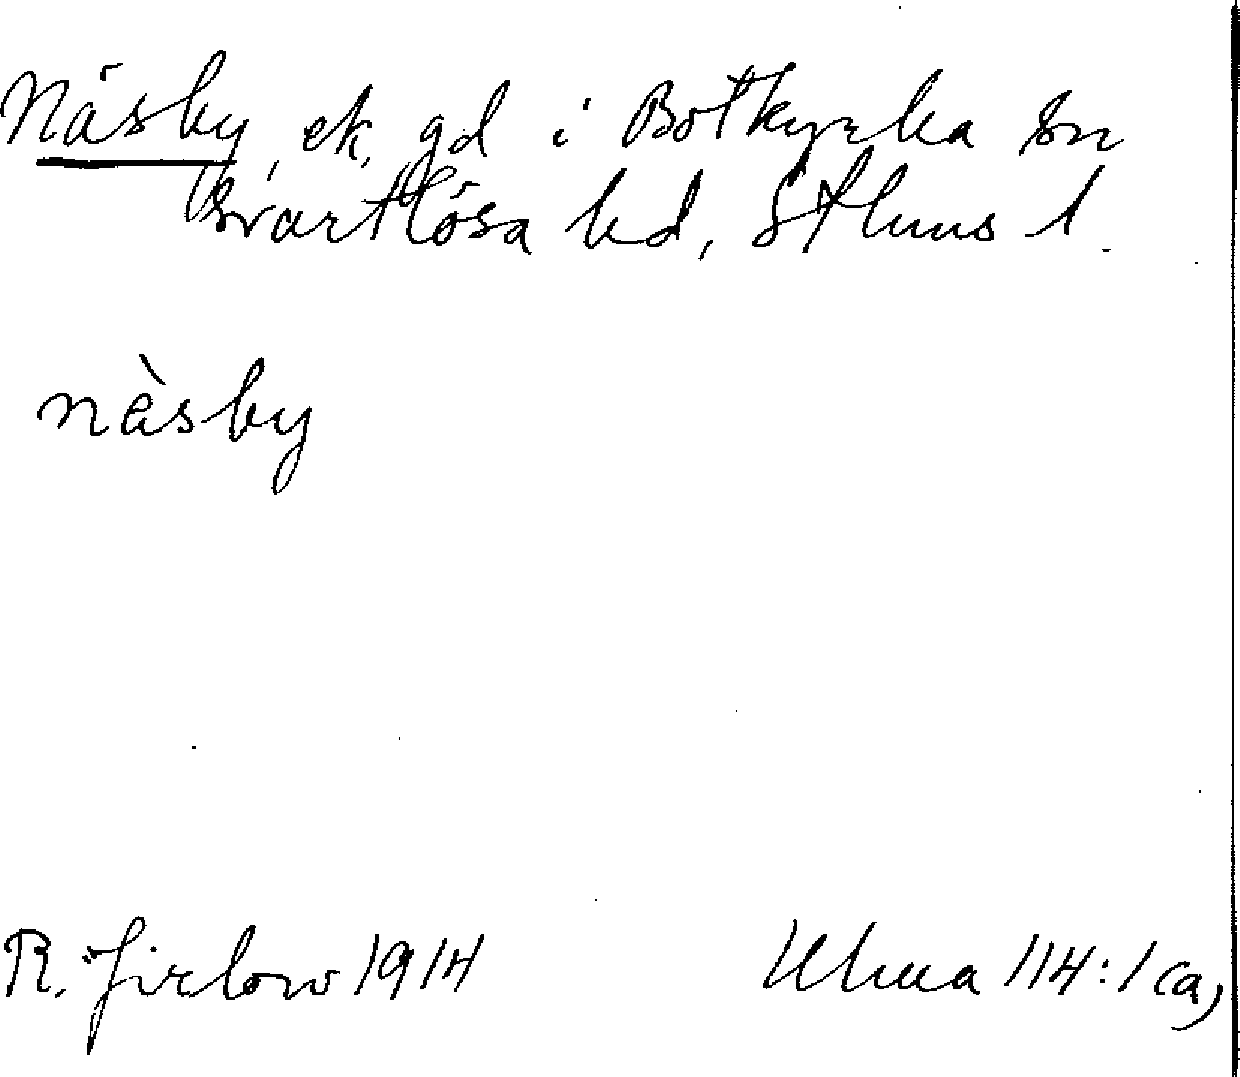 Näsby, ek. gd i Botkyrka sn
Svartlösa hd, Sthms l.
nàsby
R. Jirlow 1914
Ulma 114:1 (a)